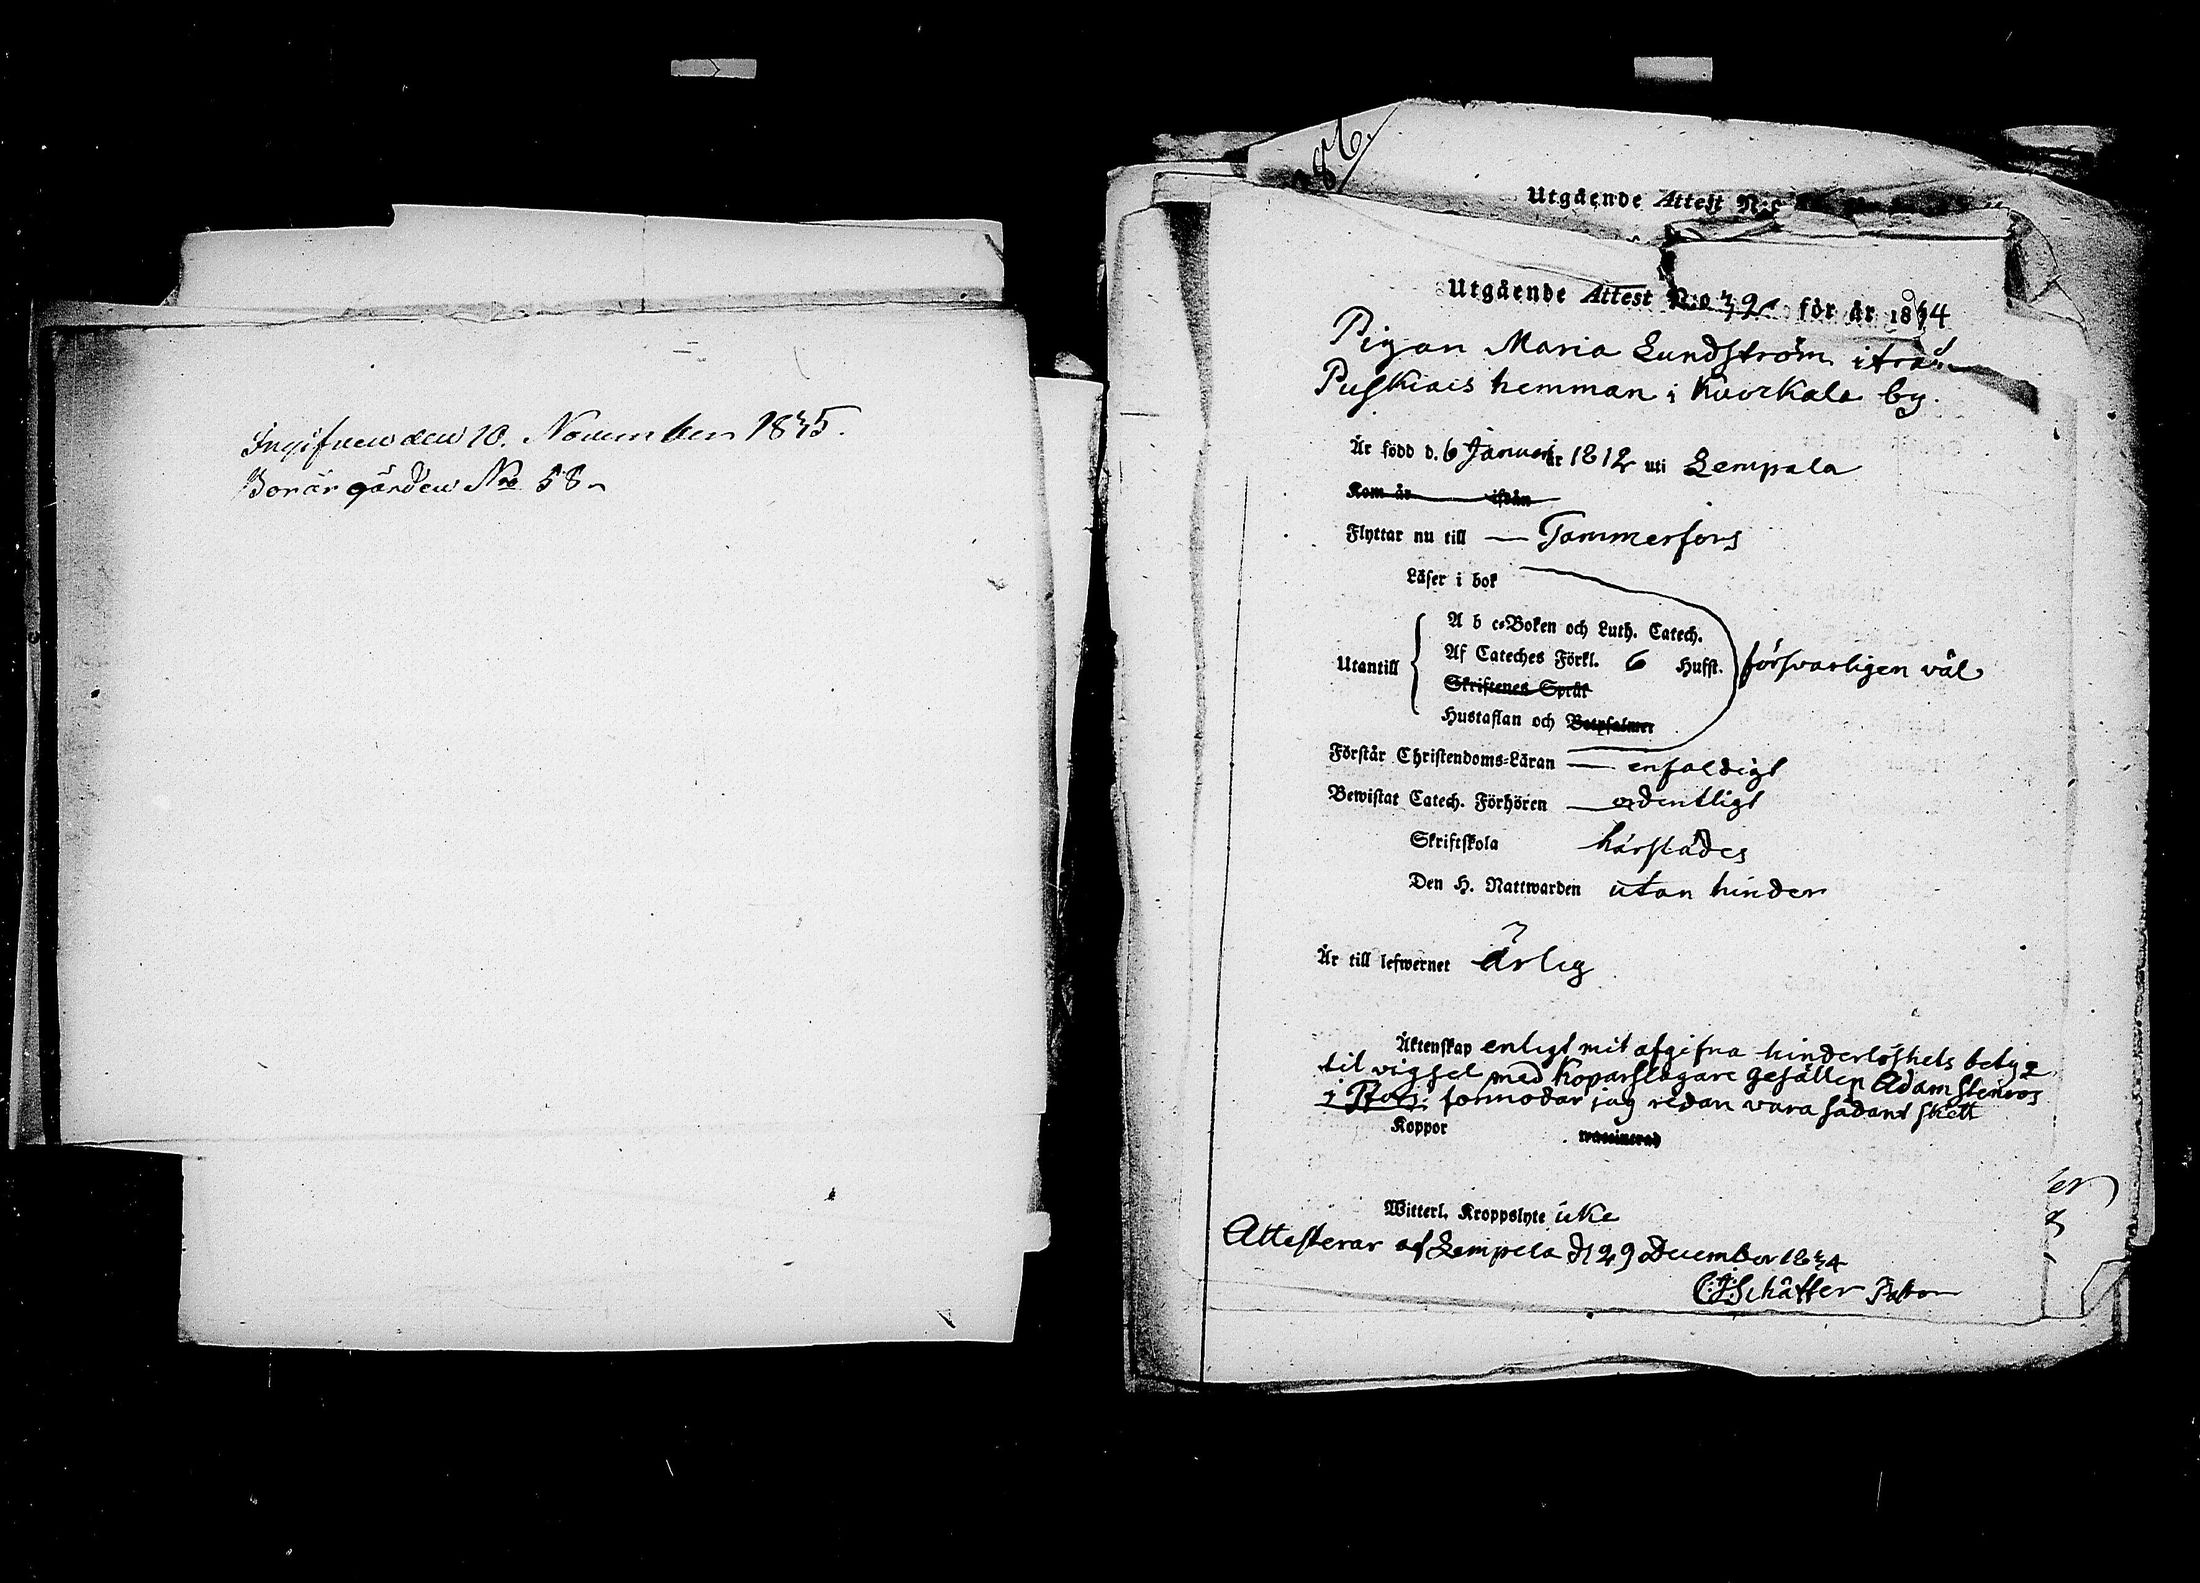 Ingifven den 10. November 1835.
Bor i gården No 58
386.
Utgående Attest N:o
Utgående Attest N:o 39 för år 1834
Pigan Maria Lundström ifrån
Puskiais hemman i Kuorkala by.
Är född d. 6 Januari 1812 uti Lempala
Kom år ifrån
Flyttar nu till — Tammerfors
Läser i bok
A b c-Boken och Luth. Catech.
Utantill Af Cateches Förkl. 6 Hufst. försvarligen väl
Skriftenes Språk
Hustaflan och Botpsalmer
Förstår Christendoms-Läran — enfaldigt
Bewistat Catech. Förhören — ordentligt
Skriftskola härstädes
Den H. Nattwarden utan hinder
Är till lefwernet ärlig
Äktenskap enligt mit afgifna hinderlöshets betyg
til vigsel med Koparslagare gesällen Adam Stenros
i förmodar jag redan vara sådant skett
Koppor waccinerad
Witterl. Kroppslyte icke
Attesterar af Lempela d 29 December 1834
C:J:Schäffer Pastor